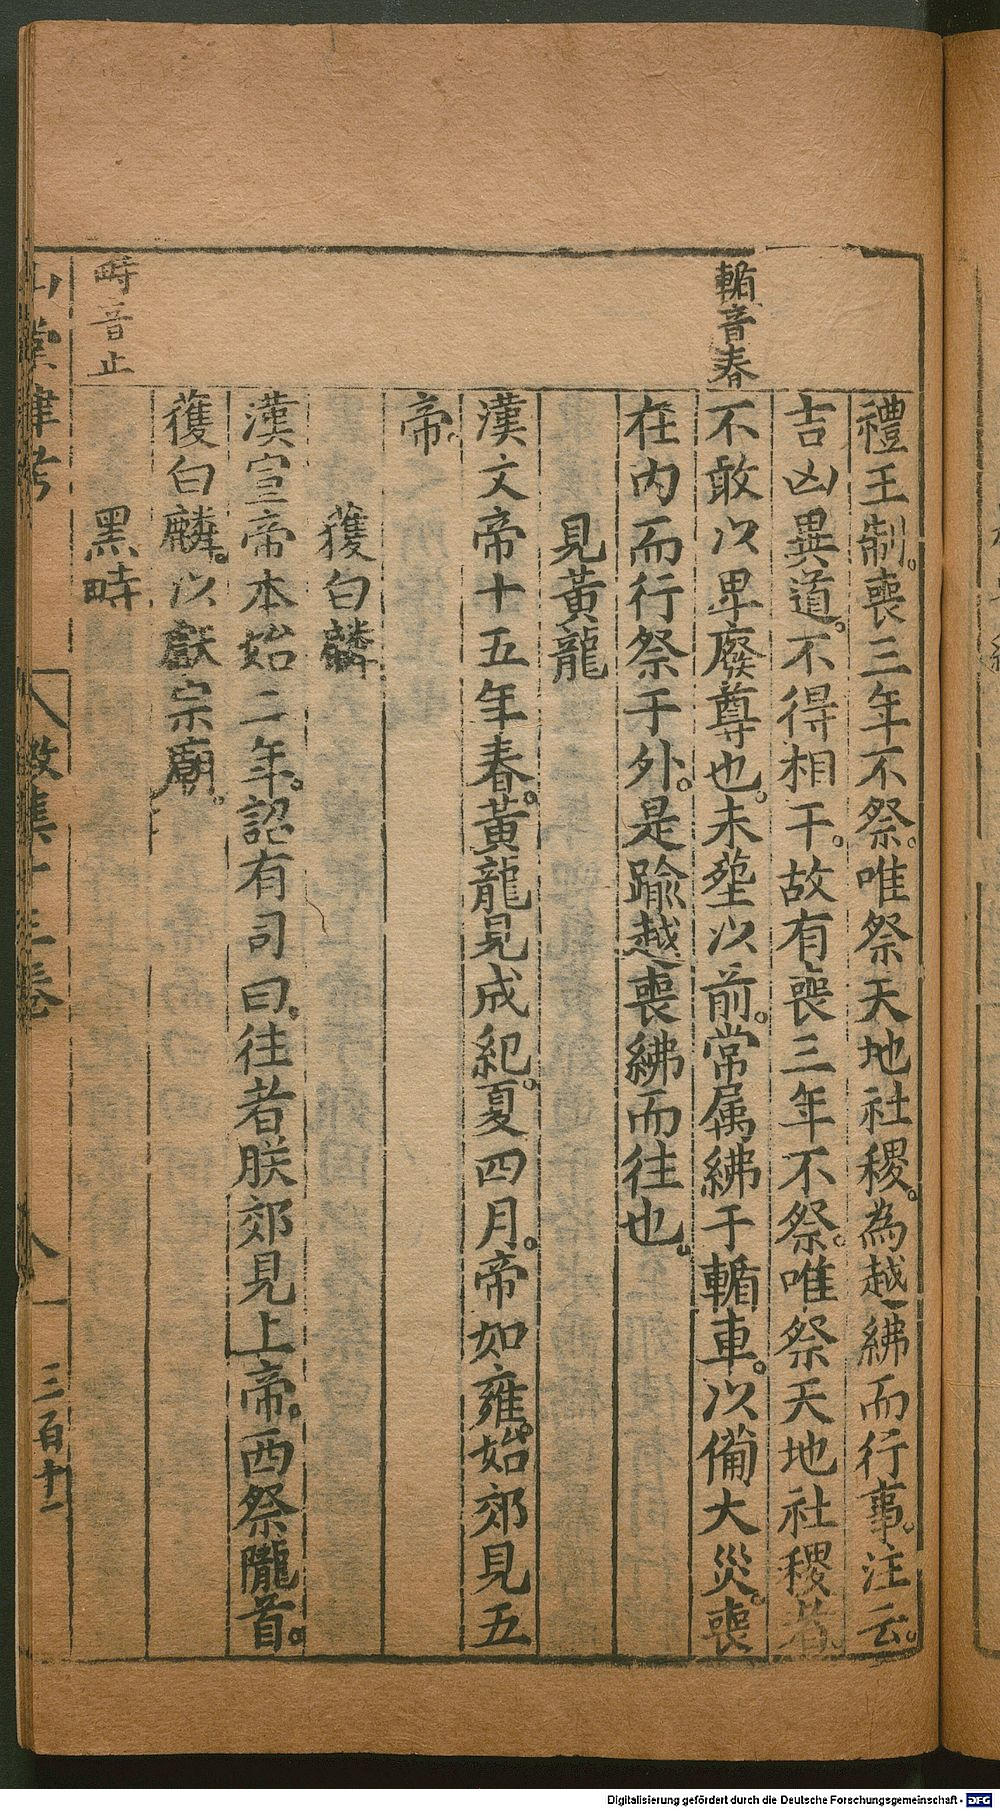 輴音春
禮王制。喪三年不祭。唯祭天地社稷。為越紼而行事。注云。
吉凶異道。不得相干。故有喪三年不祭。唯祭天地社稷者。
不敢以卑廢尊也。未塟以前。常属紼于輴車。以備大災。喪
在内而行祭于外。是踰越喪紼而往也。
見黃龍
漢文帝十五年春。黃龍見成紀。夏四月。帝如雍。始郊見五
帝。
獲白麟
漢宣帝本始二年。詔有司曰。往者朕郊見上帝。西祭隴首。
獲白麟。以獻宗廟。
畤音止
黑畤
山堂肆考
八 徵集十三卷 八 三百十一
Digitalisierung gefördert durch die Deutsche Forschungsgemeinschaft - DFG